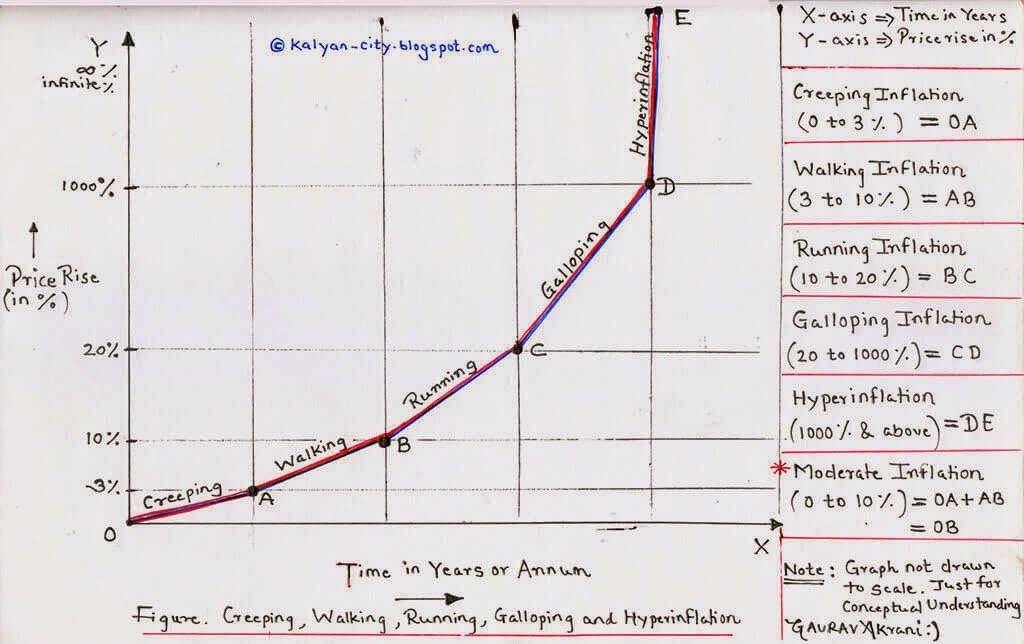 © kalyan-city.blogspot.com
Y
∞ %
infinite %
1000%
Price Rise
(in %)
20%
10%
3%
O
X
Creeping
A
Walking
B
Running
C
Galloping
D
Hyperinflation
E
Time in Years or Annum
Figure. Creeping, Walking, Running, Galloping and Hyperinflation
X-axis ⇒ Time in Years
Y-axis ⇒ Price rise in %
Creeping Inflation
(0 to 3 %) = OA
Walking Inflation
(3 to 10%) = AB
Running Inflation
(10 to 20%) = BC
Galloping Inflation
(20 to 1000%) = CD
Hyperinflation
(1000% & above) = DE
* Moderate Inflation
(0 to 10%) = OA + AB
= OB
Note: Graph not drawn
to scale. Just for
Conceptual Understanding
GAURAV Akrani :)